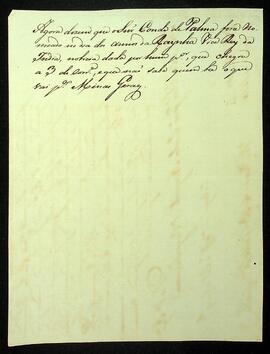 Agora dizem que o Snr Conde de Palma fora No-
meado no dia dos annos da Raynha Vice Rey da
India, noticia dada por hum pr. que chegou
a 3 do corr.e, e que não sabe quem he o que
vai p.a Minas Geraes